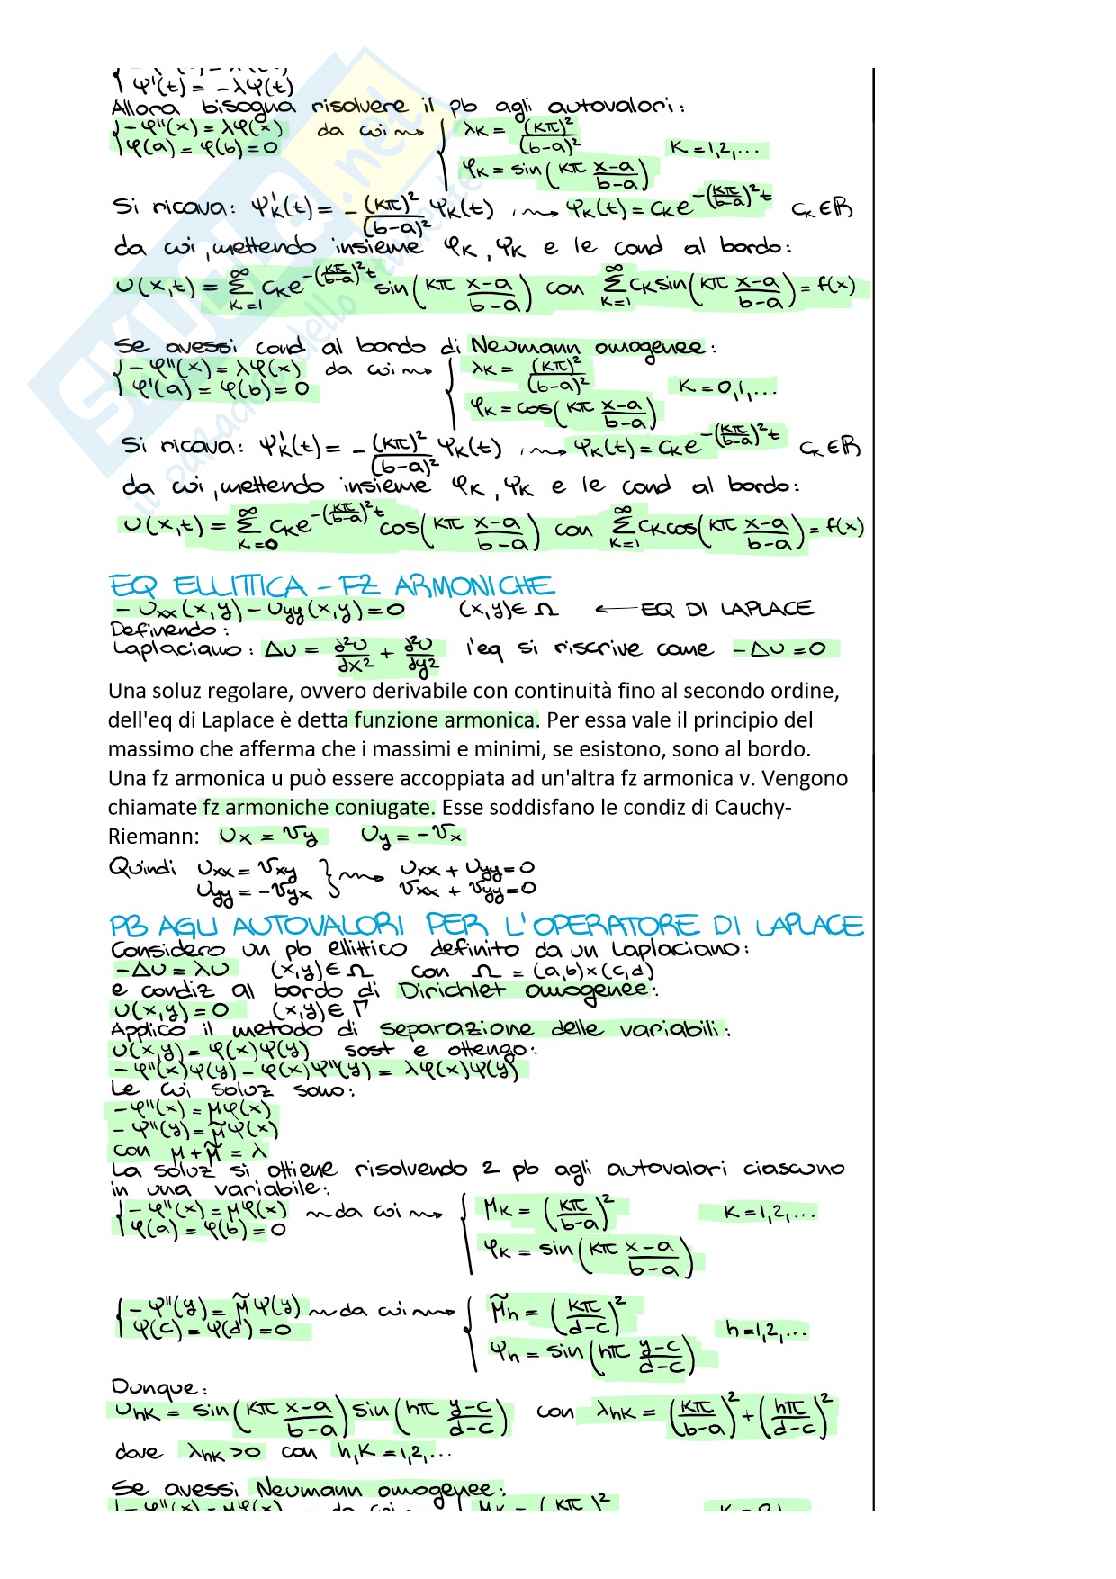 ψ'(t) = -λψ(t)
Allora bisogna risolvere il pb agli autovalori:
{-φ''(x) = λφ(x) da cui ⇝ { λk = (kπ)²/(b-a)² k = 1,2,...
φ(a) = φ(b) = 0 φk = sin(kπ (x-a)/(b-a))
Si ricava: ψ'k(t) = -(kπ)²/(b-a)² ψk(t) ⇝ ψk(t) = Ck e^-(kπ/(b-a))²t Ck ∈ ℝ
da cui, mettendo insieme φk, ψk e le cond al bordo:
U(x,t) = Σ_{k=1}^∞ Ck e^-(kπ/(b-a))²t sin(kπ (x-a)/(b-a)) con Σ_{k=1}^∞ Ck sin(kπ (x-a)/(b-a)) = f(x)
Se avessi cond al bordo di Neumann omogenee:
{-φ''(x) = λφ(x) da cui ⇝ { λk = (kπ)²/(b-a)² k = 0,1,...
φ'(a) = φ(b) = 0 φk = cos(kπ (x-a)/(b-a))
Si ricava: ψ'k(t) = -(kπ)²/(b-a)² ψk(t) ⇝ ψk(t) = Ck e^-(kπ/(b-a))²t Ck ∈ ℝ
da cui, mettendo insieme φk, ψk e le cond al bordo:
U(x,t) = Σ_{k=0}^∞ Ck e^-(kπ/(b-a))²t cos(kπ (x-a)/(b-a)) con Σ_{k=1}^∞ Ck cos(kπ (x-a)/(b-a)) = f(x)
EQ ELLITTICA - FZ ARMONICHE
-Uxx(x,y) - Uyy(x,y) = 0 (x,y) ∈ Ω ← EQ DI LAPLACE
Definendo:
Laplaciano: ΔU = ∂²U/∂x² + ∂²U/∂y² l'eq si riscrive come -ΔU = 0
Una soluz regolare, ovvero derivabile con continuità fino al secondo ordine,
dell'eq di Laplace è detta funzione armonica. Per essa vale il principio del
massimo che afferma che i massimi e minimi, se esistono, sono al bordo.
Una fz armonica u può essere accoppiata ad un'altra fz armonica v. Vengono
chiamate fz armoniche coniugate. Esse soddisfano le condiz di Cauchy-
Riemann: Ux = Vy Uy = -Vx
Quindi Uxx = Vxy } ⇝ Uxx + Uyy = 0
Uyy = -Vyx Vxx + Vyy = 0
PB AGLI AUTOVALORI PER L'OPERATORE DI LAPLACE
Considero un pb ellittico definito da un Laplaciano:
-ΔU = λU (x,y) ∈ Ω con Ω = (a,b)×(c,d)
e condiz al bordo di Dirichlet omogenee:
U(x,y) = 0 (x,y) ∈ Γ
Applico il metodo di separazione delle variabili:
U(x,y) = φ(x)ψ(y) sost e ottengo:
-φ''(x)ψ(y) - φ(x)ψ''(y) = λφ(x)ψ(y)
Le cui soluz sono:
-φ''(x) = μφ(x)
-ψ''(y) = μ̃ψ(x)
con μ + μ̃ = λ
La soluz si ottiene risolvendo 2 pb agli autovalori ciascuno
in una variabile:
{-φ''(x) = μφ(x) ⇝ da cui ⇝ { μk = (kπ/(b-a))² k = 1,2,...
φ(a) = φ(b) = 0 φk = sin(kπ (x-a)/(b-a))
{-ψ''(y) = μ̃ψ(y) ⇝ da cui ⇝ { μ̃h = (kπ/(d-c))² h = 1,2,...
ψ(c) = ψ(d) = 0 ψh = sin(hπ (y-c)/(d-c))
Dunque:
Uhk = sin(kπ (x-a)/(b-a)) sin(hπ (y-c)/(d-c)) con λhk = (kπ/(b-a))² + (hπ/(d-c))²
dove λhk > 0 con h,k = 1,2,...
Se avessi Neumann omogenee: